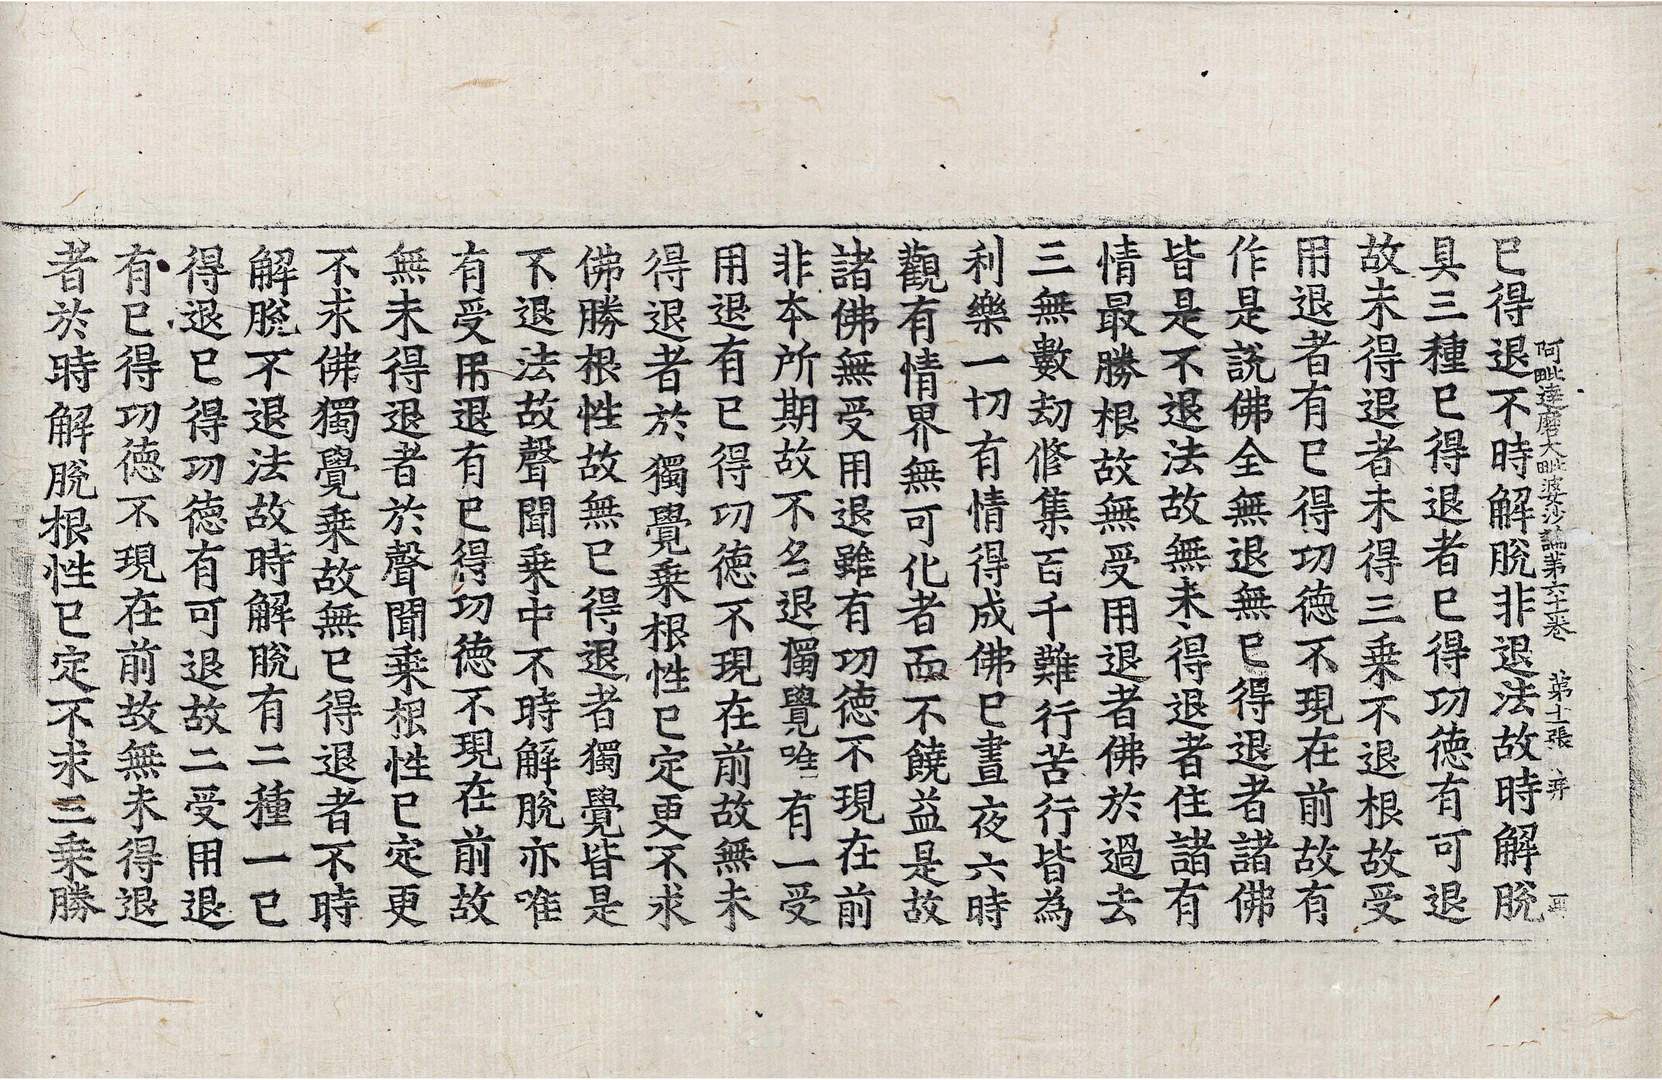 阿毗達磨大毗婆沙論第六十卷 第十張 弄
已得退不時解脫非退法故時解脫
具三種已得退者已得功德有可退
故未得退者未得三乗不退根故受
用退者有已得功德不現在前故有
作是說佛全無退無已得退者諸佛
皆是不退法故無未得退者住諸有
情最勝根故無受用退者佛於過去
三無數劫修集百千難行苦行皆為
利樂一切有情得成佛已晝夜六時
觀有情界無可化者而不饒益是故
諸佛無受用退雖有功德不現在前
非本所期故不名退獨覺唯有一受
用退有已得功德不現在前故無未
得退者於獨覺乗根性已定更不求
佛勝根性故無已得退者獨覺皆是
不退法故聲聞乗中不時解脫亦唯
有受用退有已得功德不現在前故
無未得退者於聲聞乗根性已定更
不求佛獨覺乗故無已得退者不時
解脫不退法故時解脫有二種一已
得退已得功德有可退故二受用退
有已得功德不現在前故無未得退
者於時解脫根性已定不求三乗勝